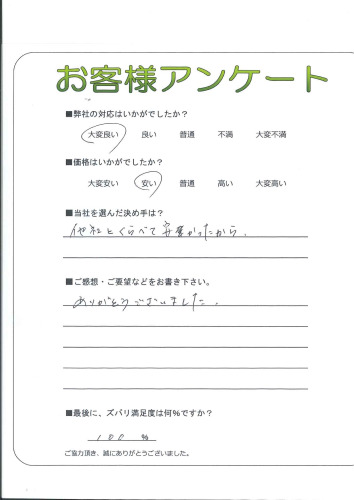 お客様アンケート
■弊社の対応はいかがでしたか？
大変良い 良い 普通 不満 大変不満
■価格はいかがでしたか？
大変安い 安い 普通 高い 大変高い
■当社を選んだ決め手は？
他社とくらべて安かったから。
■ご感想・ご要望などをお書き下さい。
ありがとうございました。
■最後に、ズバリ満足度は何％ですか？
100 %
ご協力頂き、誠にありがとうございました。